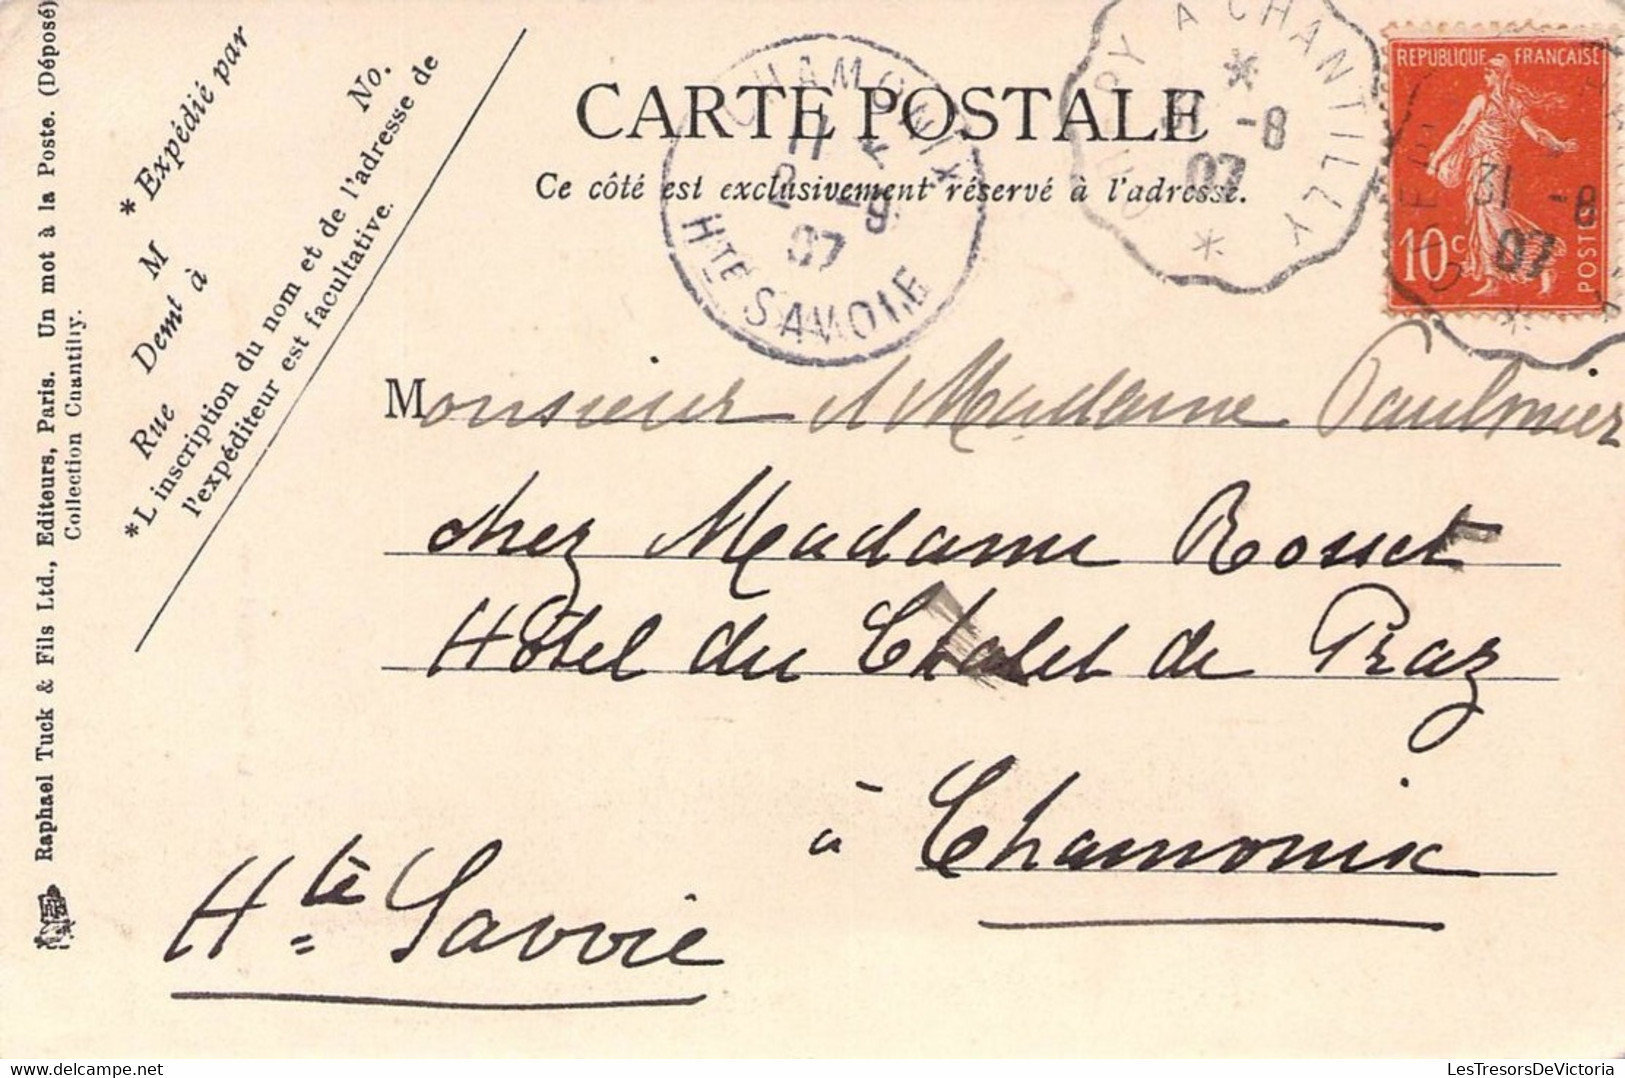 CARTE POSTALE
Ce côté est exclusivement réservé à l'adresse.
CHAMONIX
11
2 -9
07
Hte SAVOIE
CRÉPY A CHANTILLY
31 -8
07
REPUBLIQUE FRANÇAISE
10c
POSTES
31 -8
07
No.
* Expédié par
M
Demt à
Rue
*L'inscription du nom et de l'adresse de
l'expéditeur est facultative.
Raphael Tuck & Fils Ltd., Editeurs, Paris. Un mot à la Poste. (Déposé)
Collection Chantilly.
Monsieur et Madame Paulmier
chez Madame Rosset
Hôtel du Chalet de Praz
à Chamonix
Hte Savoie
LesTresorsDeVictoria